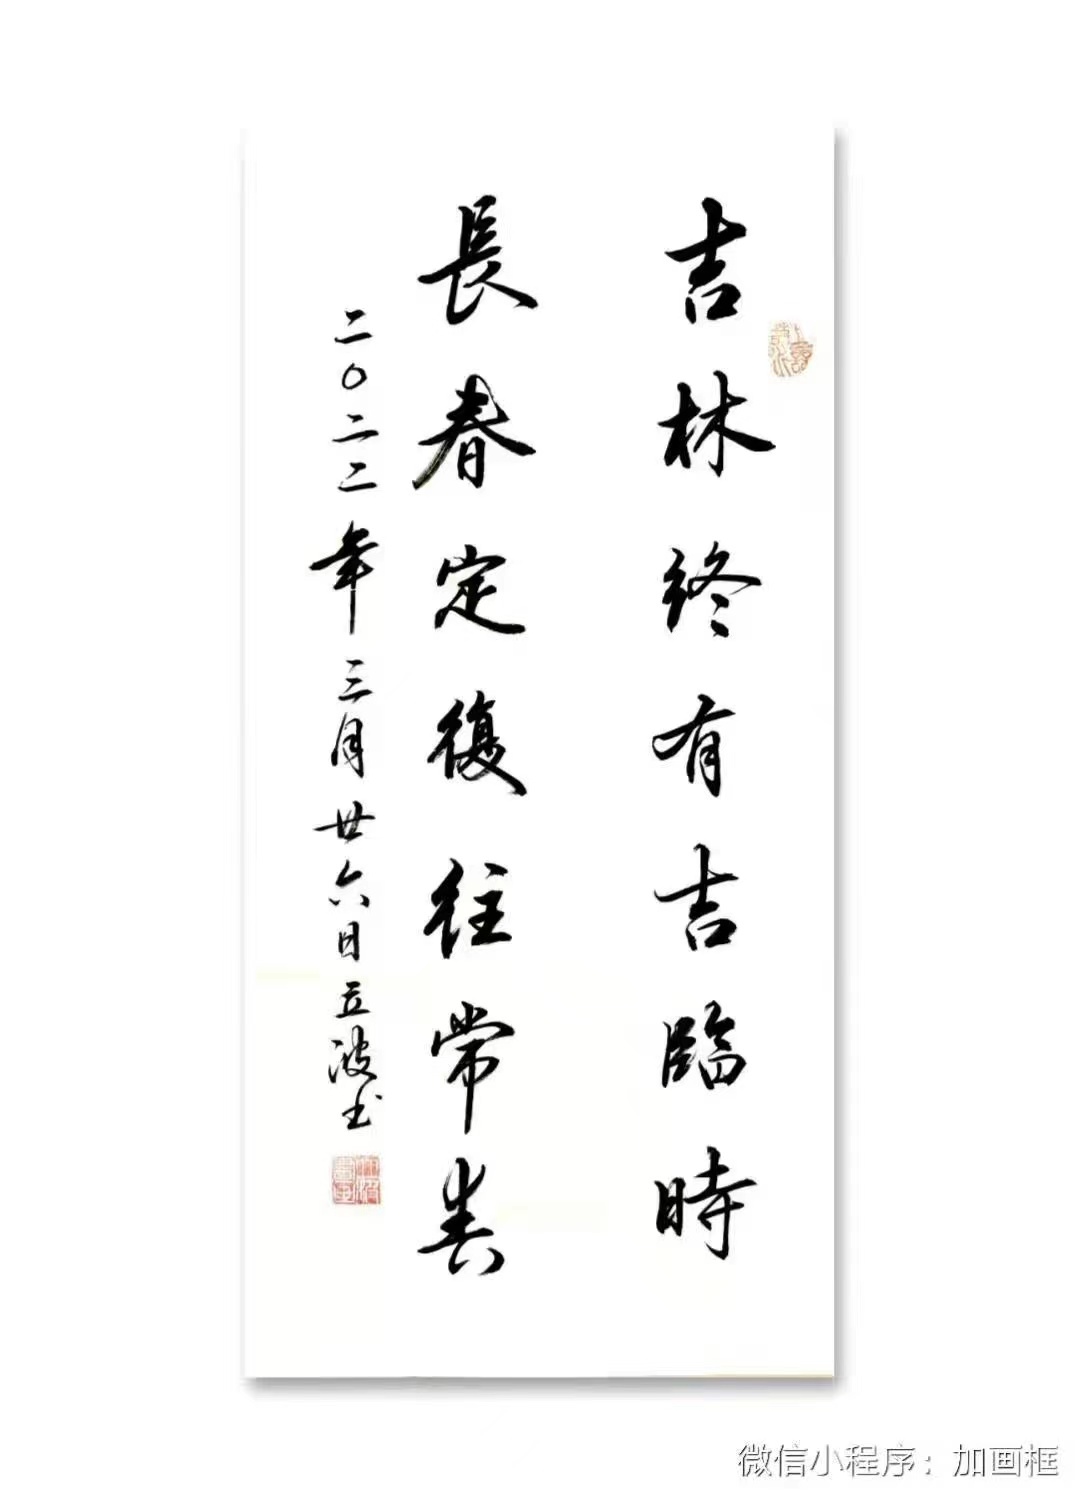 吉林终有吉臨時
長春定復往常春
二〇二二年三月廿六日立波书
微信小程序：加画框